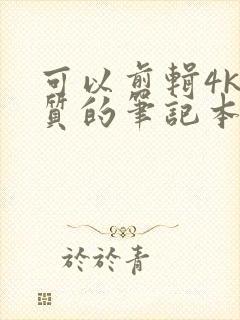 可以剪輯4K
質的筆記本
於於青